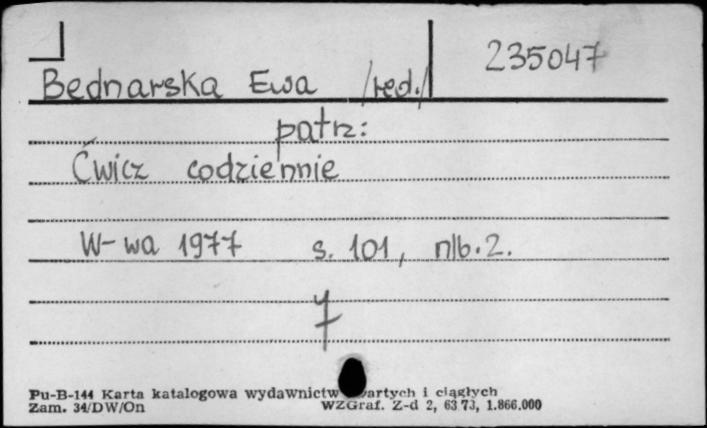 235047
Bednarska Ewa /red./
patrz:
Ćwicz codziennie
W-wa 1977 s. 101, nlb. 2.
Pu-B-144 Karta katalogowa wydawnictw zwartych i ciągłych
Zam. 34/DW/On WZGraf. Z-d 2, 63 73, 1.866.000